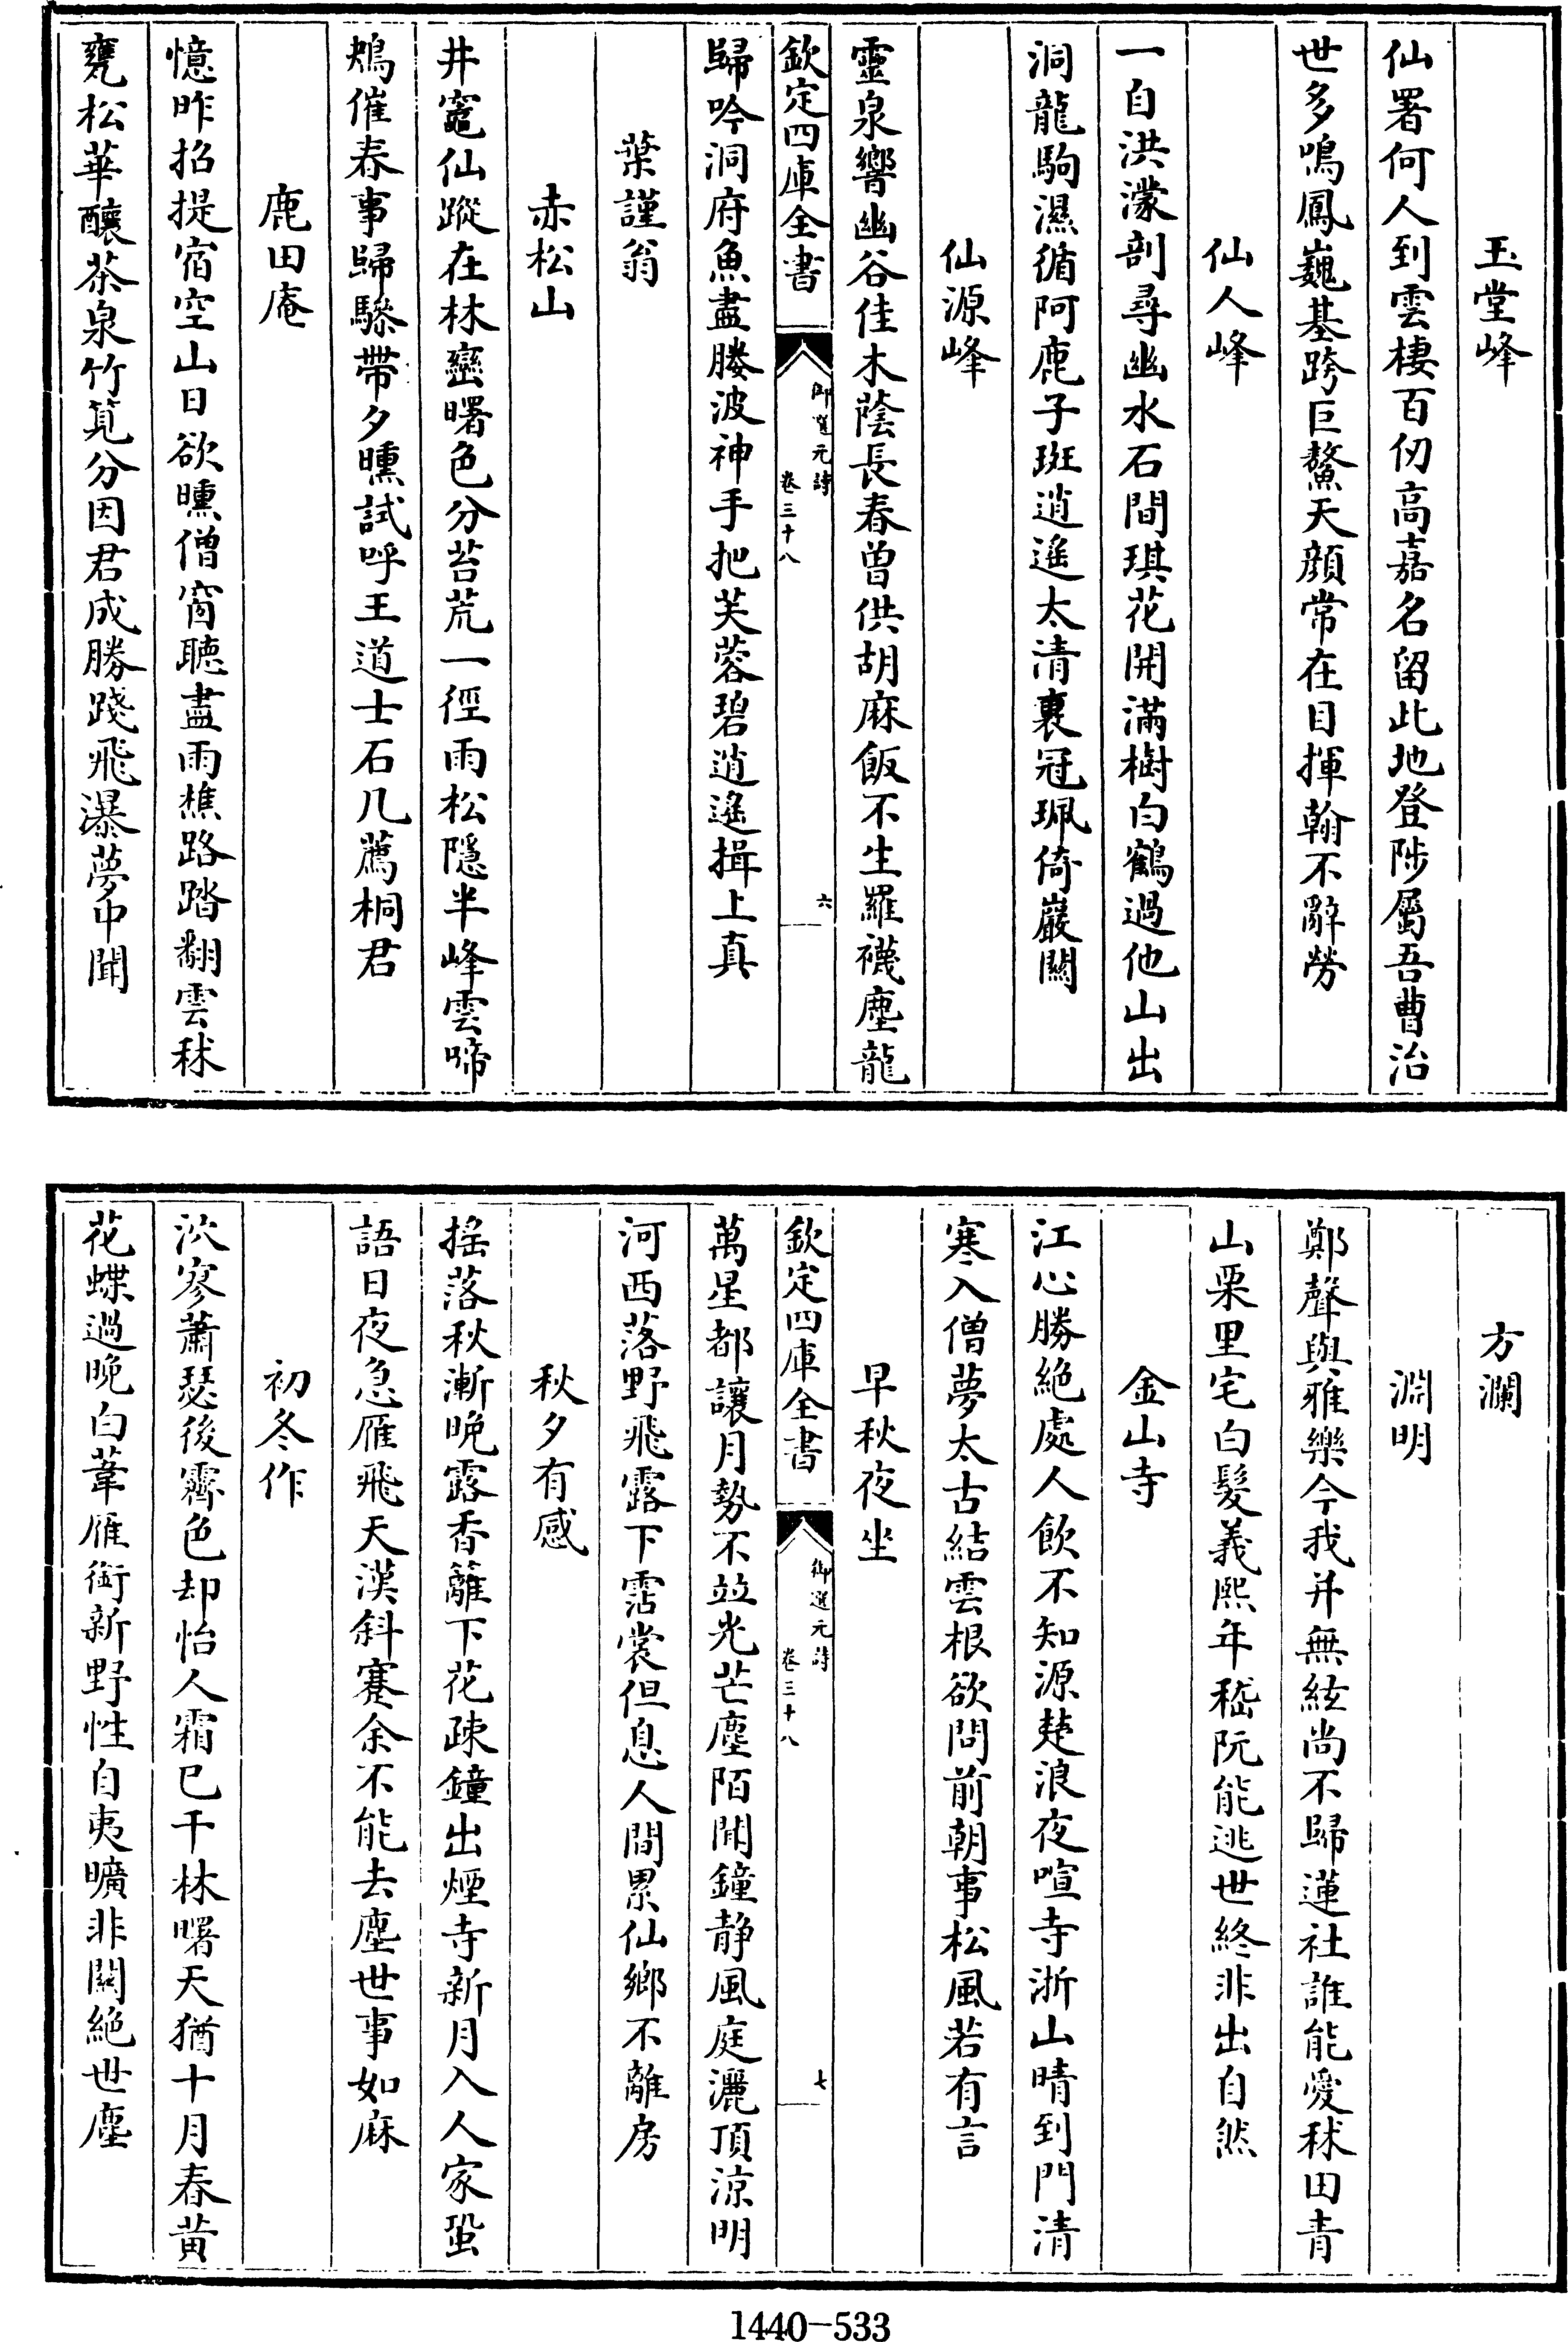 玉堂峰
仙署何人到雲棲百仞高嘉名留此地登陟屬吾曹治
世多鳴鳳巍基跨巨鰲天顔常在目揮翰不辭勞
仙人峰
一自洪濛剖尋幽水石間琪花開滿樹白鶴過他山出
洞龍駒濕循阿鹿子斑逍遥太清裏冠珮倚巖關
仙源峰
靈泉響幽谷佳木蔭長春曾供胡麻飯不生羅襪塵龍
欽定四庫全書
御選元詩
卷三十八
六
歸吟洞府魚盡媵波神手把芙蓉碧逍遥揖上真
葉謹翁
赤松山
井竈仙蹤在林巒曙色分苔荒一徑雨松隱半峰雲啼
鴂催春事歸驂帶夕曛試呼王道士石几薦桐君
鹿田庵
憶昨招提宿空山日欲曛僧窗聽盡雨樵路踏翻雲秫
甕松華釀茶泉竹筧分因君成勝踐飛瀑夢中聞
方瀾
淵明
鄭聲與雅樂今我并無絃尚不歸蓮社誰能愛秫田青
山栗里宅白髮義熙年嵇阮能逃世終非出自然
金山寺
江心勝絶處人飲不知源楚浪夜喧寺浙山晴到門清
寒入僧夢太古結雲根欲問前朝事松風若有言
早秋夜坐
欽定四庫全書
御選元詩
卷三十八
七
萬星都讓月勢不並光芒塵陌閒鐘静風庭灑頂涼明
河西落野飛露下霑裳但息人間累仙鄉不離房
秋夕有感
摇落秋漸晚露香籬下花疎鐘出煙寺新月入人家蛩
語日夜急雁飛天漢斜蹇余不能去塵世事如麻
初冬作
泬寥蕭瑟後霽色却怡人霜已千林曙天猶十月春黄
花蝶過晚白葦雁銜新野性自夷曠非關絶世塵
1440-533